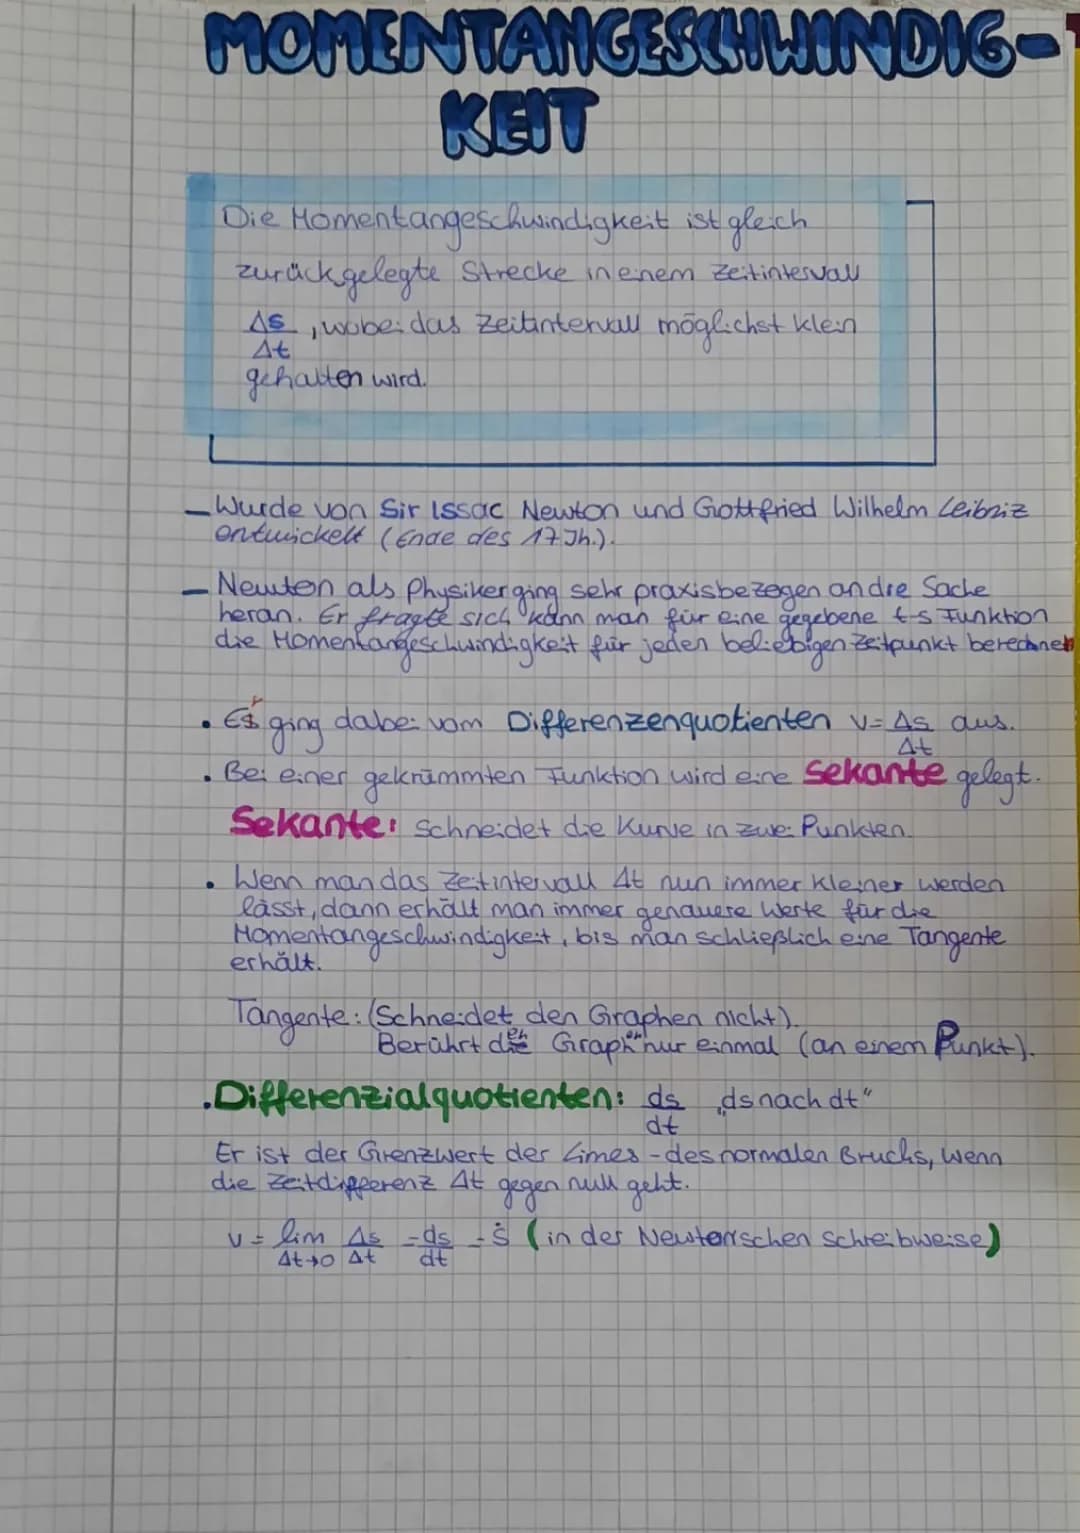 MOMENTANGESCHWINDIG-
KEIT
Die Momentangeschwindigkeit ist gleich
zurückgelegte Strecke in einem Zeitintervall
Δs/Δt, wobei das Zeitintervall möglichst klein
gehalten wird.
– Wurde von Sir Issac Newton und Gottfried Wilhelm Leibniz
entwickelt (Ende des 17 Jh.).
– Newton als Physiker ging sehr praxisbezogen an die Sache
heran. Er fragte sich kann man für eine gegebene t-s Funktion
die Momentangeschwindigkeit für jeden beliebigen Zeitpunkt berechnen
• Er ging dabei vom Differenzenquotienten v = Δs/Δt aus.
• Bei einer gekrümmten Funktion wird eine Sekante gelegt.
Sekante: Schneidet die Kurve in zwei Punkten.
• Wenn man das Zeitintervall Δt nun immer kleiner werden
lässt, dann erhält man immer genauere Werte für die
Momentangeschwindigkeit, bis man schließlich eine Tangente
erhält.
Tangente: (Schneidet den Graphen nicht).
Berührt den Graphen nur einmal (an einem Punkt).
• Differenzialquotienten: ds/dt „ds nach dt"
Er ist der Grenzwert der Limes - des normalen Bruchs, wenn
die Zeitdifferenz Δt gegen null geht.
v = lim Δt→0 Δs/Δt = ds/dt = ṡ (in der Newtonschen Schreibweise)